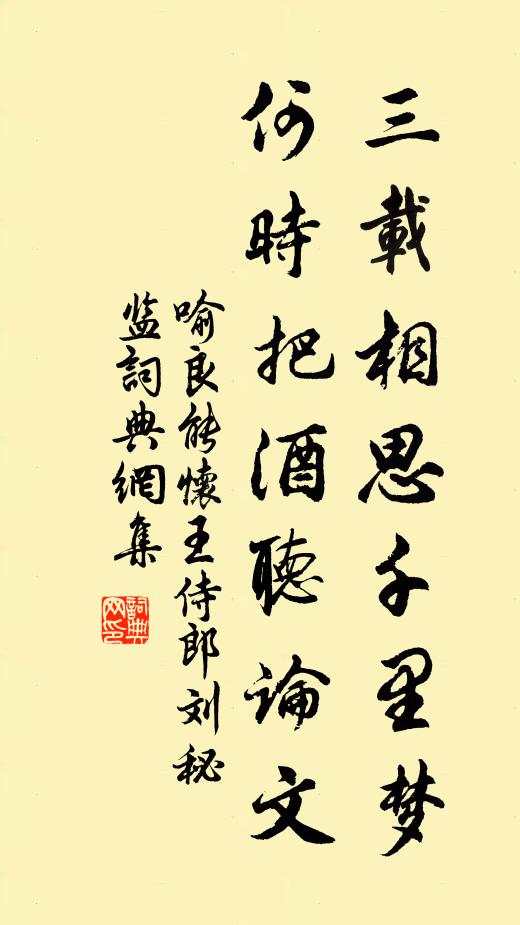 三載相思千里梦
何時把酒聽論文
喻良能懷王侍郎刘秘
监詞典網集
詞典网印